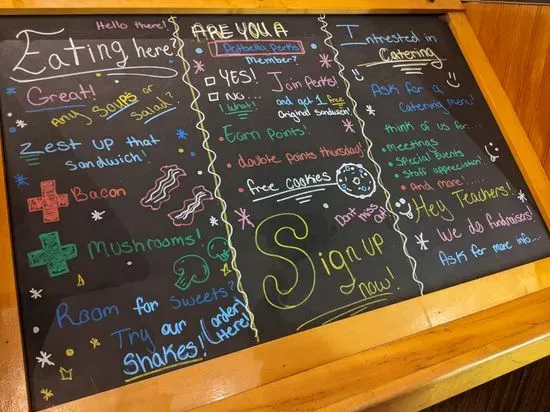 Hello there!
Eating here?
Great!
Any Soups or
Salad?
Zest up that
sandwich!
Bacon
Mushrooms!
Room for Sweets?
Try our
Shakes!
(order
Here!)
ARE YOU A
Potbelly Perks
Member?
YES!
NO...
(What!)
Join Perks!
and get 1 free
original sandwich!
• Earn Points!
• double points Thursday!
• free cookies
Don't miss
out!
Sign up
now!
Intrested in
Catering
Ask for a
Catering menu!
think of us for....
• Meetings
• Special Events
• Staff appreciation!
• And more......
Hey Teachers!
We do fundraisers!
Ask for more info....